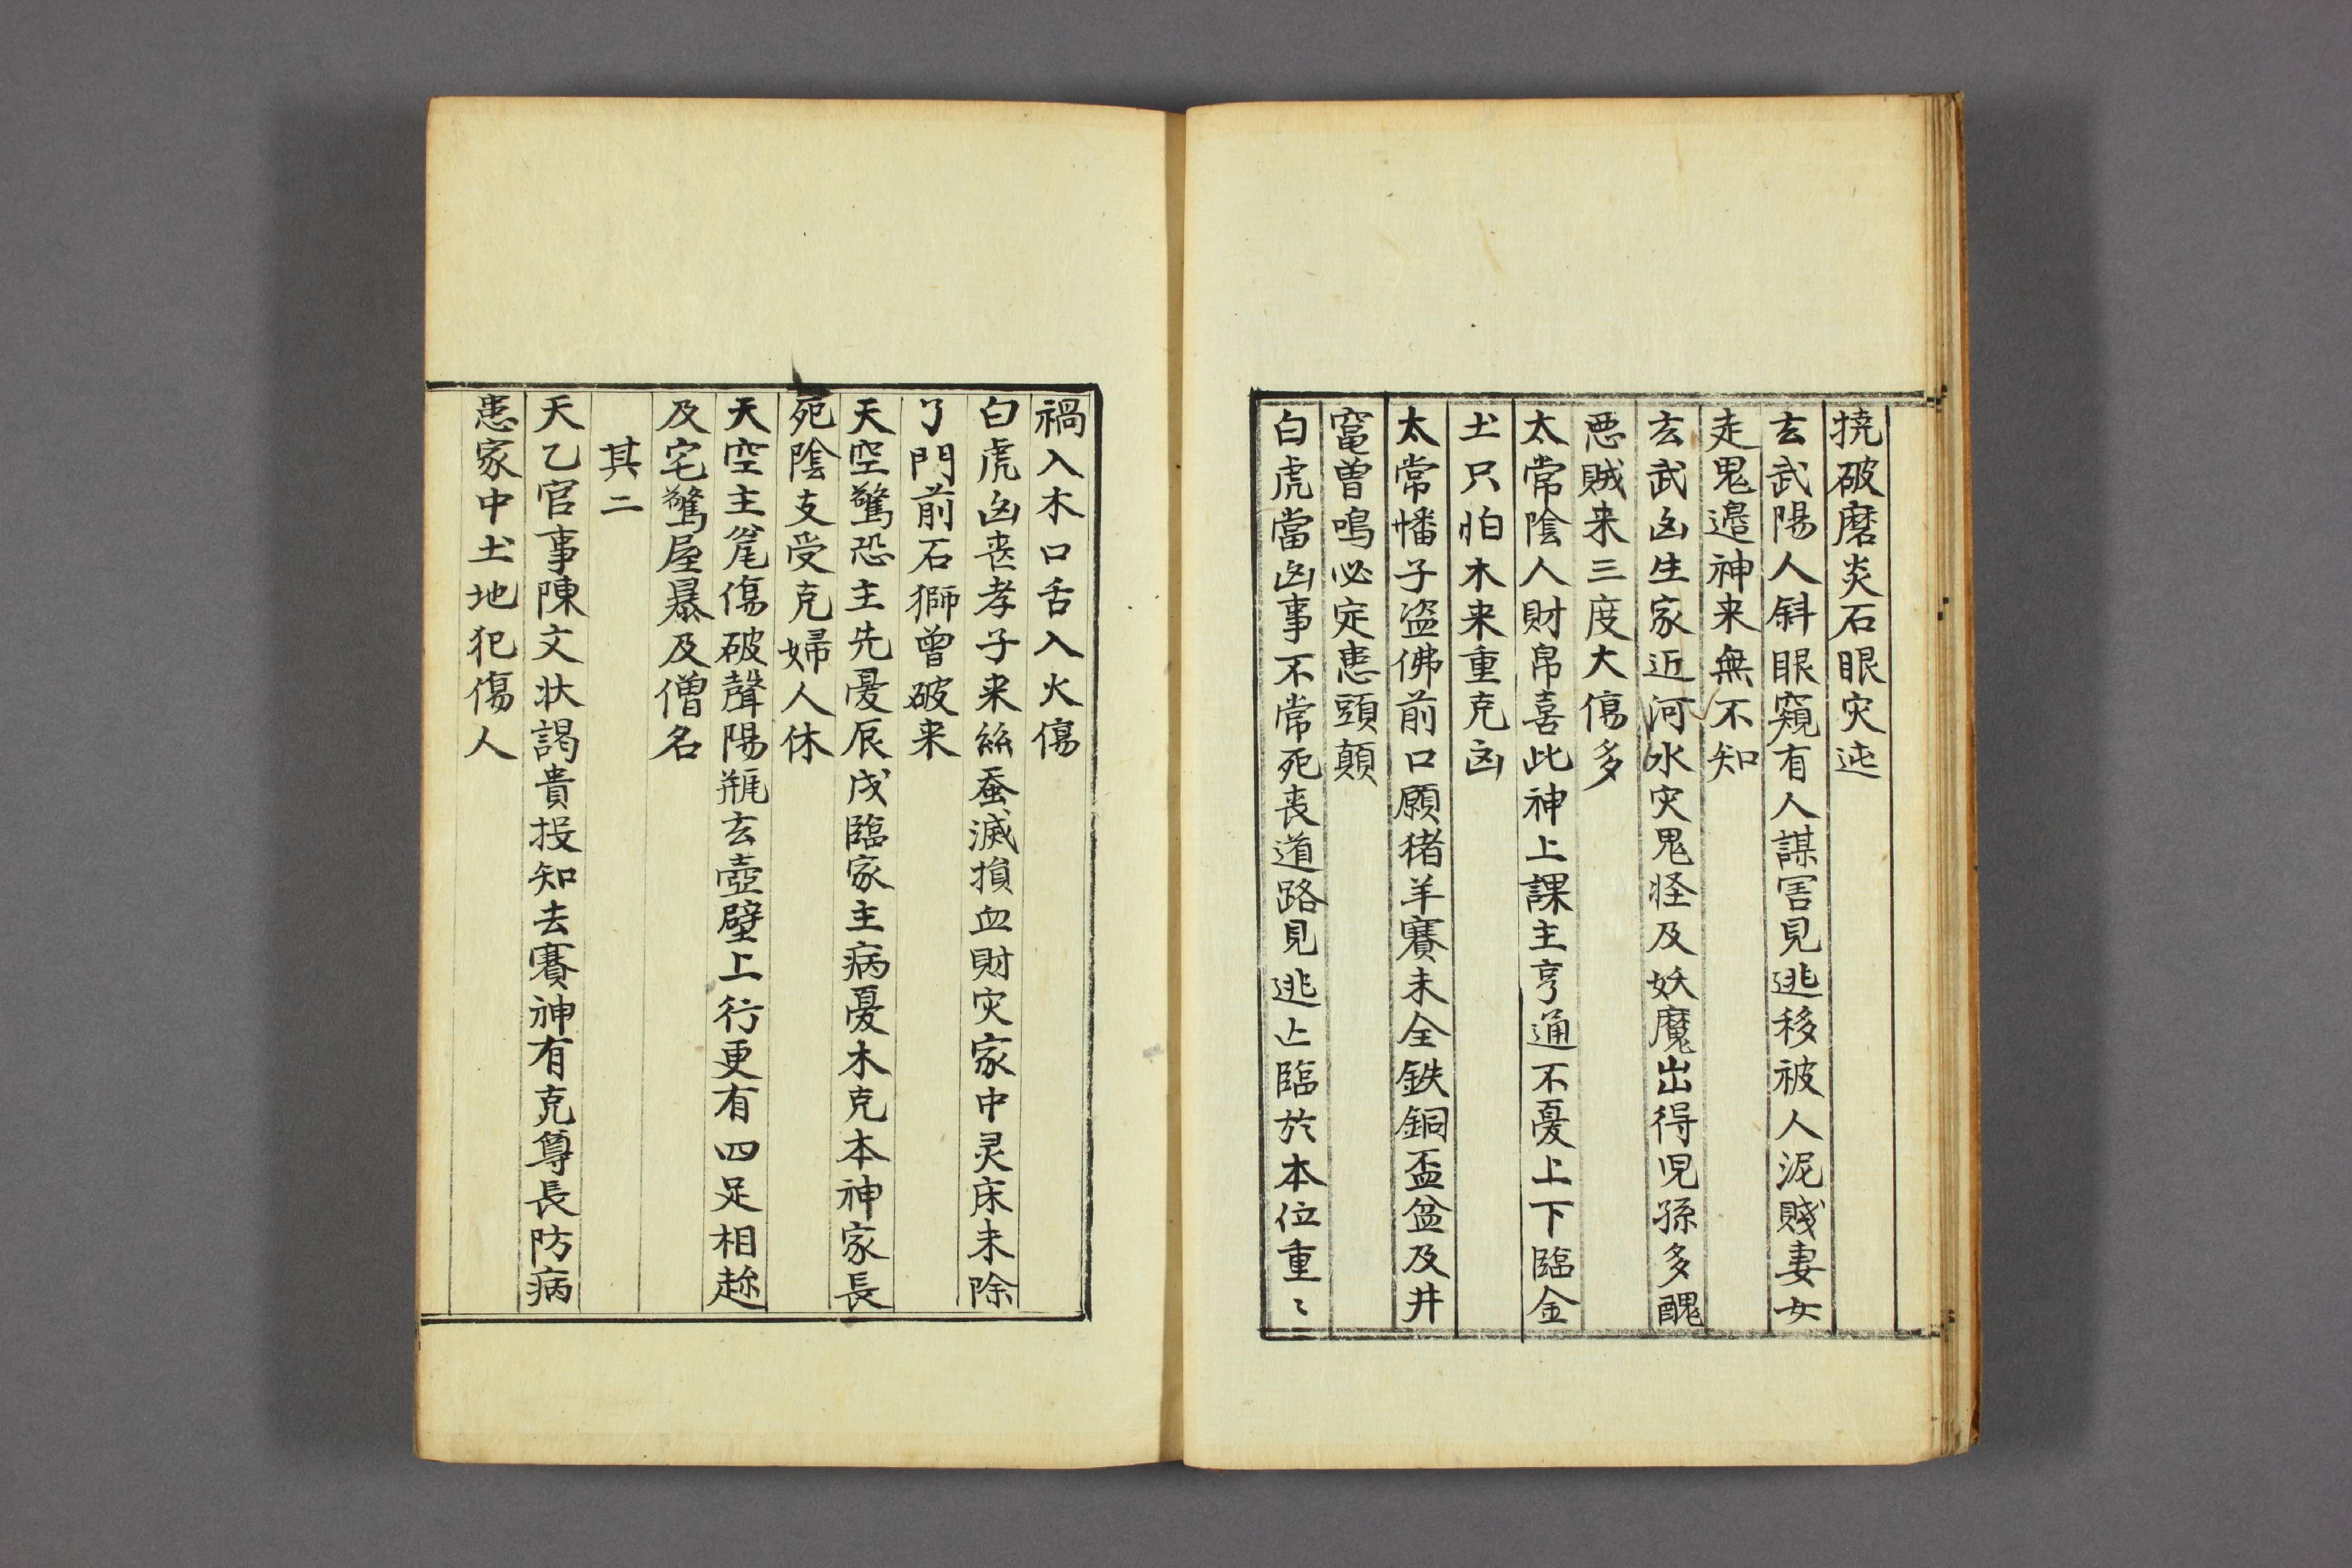 撓破磨炎石眼灾迍
玄武陽人斜眼窺有人謀害見逃移被人泥賤妻女
走鬼邉神来無不知
玄武凶生家近河水灾鬼怪及妖魔出得児孫多醜
悪賊来三度大傷多
太常陰人財帛喜此神上課主亨通不憂上下臨金
土只怕木来重克凶
太常幡子盗佛前口願猪羊賽未全鉄銅盃盆及井
竃曽鳴必定患頭顛
白虎當凶事不常死丧道路見逃亡臨於本位重〻
禍入木口舌入火傷
白虎凶丧孝子来絲蚕滅損血財灾家中灵床未除
了門前石獅曽破来
天空驚恐主先憂辰戌臨家主病憂木克本神家長
死陰支受克婦人休
天空主䆫傷破聲陽瓶玄壺壁上行更有四足相趂
及宅驚屋暴及僧名
其二
天乙官事陳文状謁貴投知去賽神有克尊長防病
患家中土地犯傷人